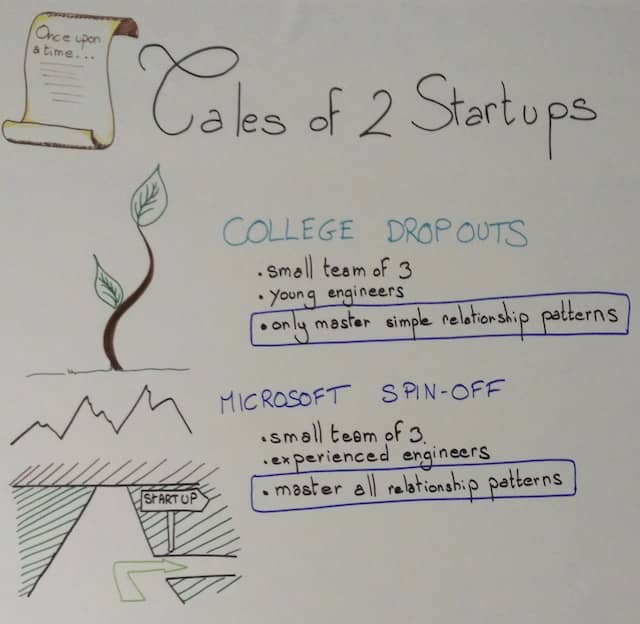 Once upon
a time...
Tales of 2 Startups
COLLEGE DROPOUTS
• small team of 3
• young engineers
• only master simple relationship patterns
MICROSOFT SPIN-OFF
• small team of 3.
• experienced engineers
• master all relationship patterns
STARTUP